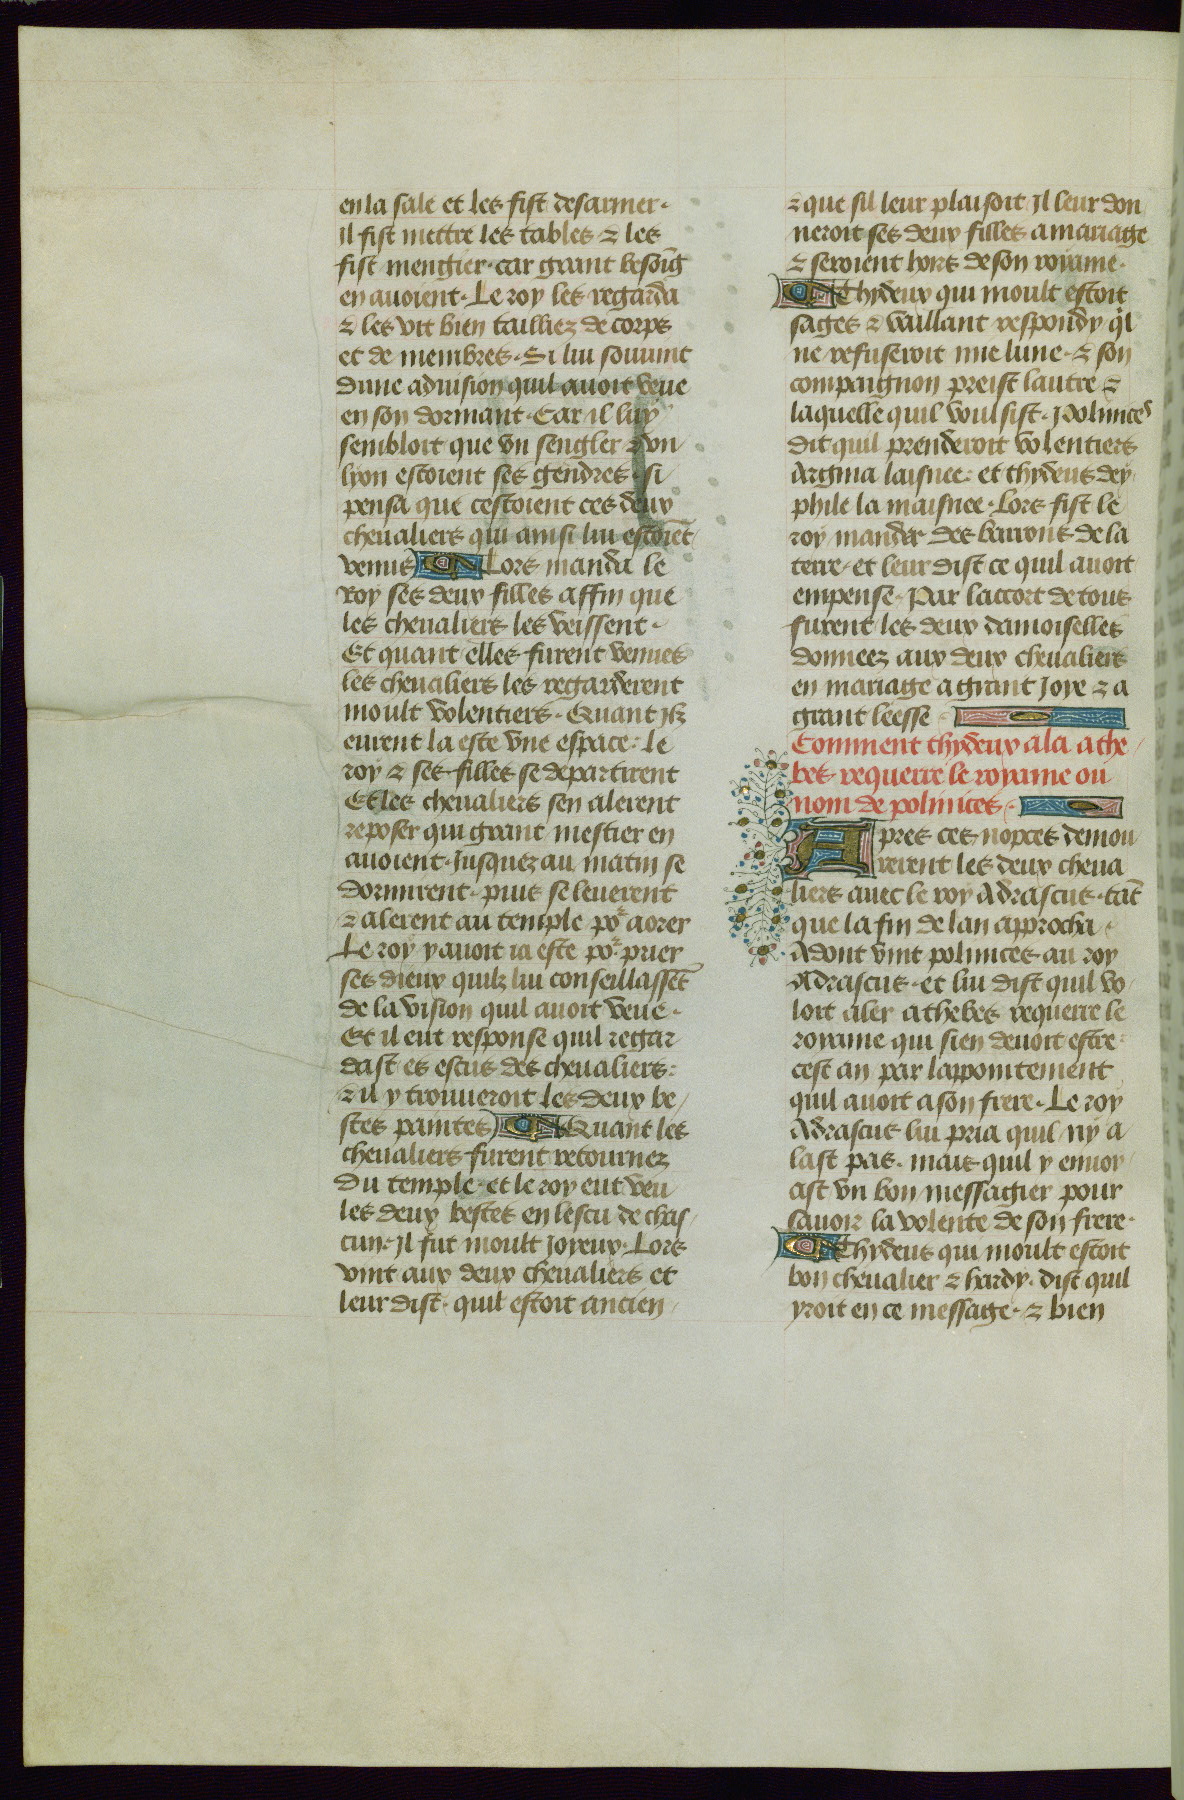 en la sale et les fist desarmer·
Il fist mettre les tables ⁊ les
fist mengier· car grant besoīg
en auoient· Le roy les regarda
⁊ les vit bien tailliez de corps
et de membres· Si lui souuint
dune aduision quil auoit veue
en son dormant· Car il luy
sembloit que vn sengler ⁊ vn
lyon estoient ses gendres· si
pensa que cestoient ces deux
cheualiers qui ainsi lui estoiēt
venus Lors manda le
Roy ses deux filles affin que
les cheualiers les veissent·
Et quant elles furent venues
les cheualiers les regarderent
moult volentiers· Quant ilz
eurent la este vne espace· le
roy ⁊ ses filles se departirent
Et les cheualiers sen alerent
reposer qui grant mestier en
auoient· Jusquez au matin se
dormirent· puis se leuerent
⁊ alerent au temple po᷑ aorer
Le roy y auoit ia este po᷑ prier
ses dieux quilz lui conseillassēt
de la vision quil auoit veue·
Et il eut response quil regar
dast es escus des cheualiers:
⁊ il y trouueroit les deux be/
stes paintes Quant les
cheualiers furent retournez
du temple· et le roy eut veu
les deux bestes en lescu de chas/
cun· Il fut moult joyeux· Lors
vint aux deux cheualiers et
leur dist· quil estoit ancien
⁊ que sil leur plaisoit Il leur don
neroit ses deux filles a mariage
⁊ seroient hors de son royame·
Thydeux qui moult estoit
sages ⁊ vaillant respondy q̓l
ne refuseroit mie lune· ⁊ son
compaignon preist lautre ⁊
laquelle quil voulsist· Polinces
dit quil prenderoit volentiers
Argina laisnee· et thydeus dey
phile la maisnee· Lors fist le
roy mander des barrons de la
terre· et leur dist ce quil auoit
empense· Par laccort de tous
furent les deux damoiselles
donneez aux deux cheualiers
en mariage a grant joye ⁊ a
grant leesse·
Comment thydeux ala a the/
bes requerre le royame ou
nom de polinices·
Apres ces nopces demou
rerent les deux cheua
liers auec le roy Adrascus· tāt
que la fin de lan approcha·
Adont vint polinices au roy
Adrascus· et lui dist quil vo/
loit aler a thebes requerre le
royame qui sien deuoit estre
cest an par lappointement
quil auoit a son frere· Le roy
Adrascus lui pria quil ny a
last pas· mais quil y enuoy/
ast vn bon messagier pour
sauoir la volente de son frere·
Thydeus qui moult estoit
bon cheualier ⁊ hardy· dist quil
yroit en ce message· ⁊ bien